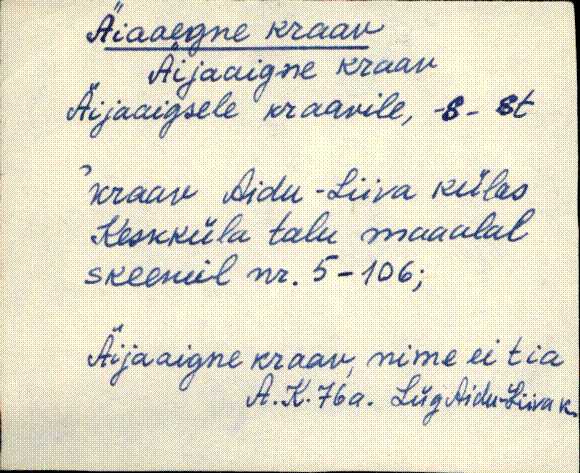 Äiaaegne kraav
Äijaaigne kraav
Äijaaigsele kraavile, -s- st
kraav Aidu-Liiva külas
Keskküla talu maaalal
skeemil nr. 5-106;
Äijaaigne kraav, nime ei tia
A.K.76a. Lüg Aidu-Liiva k.